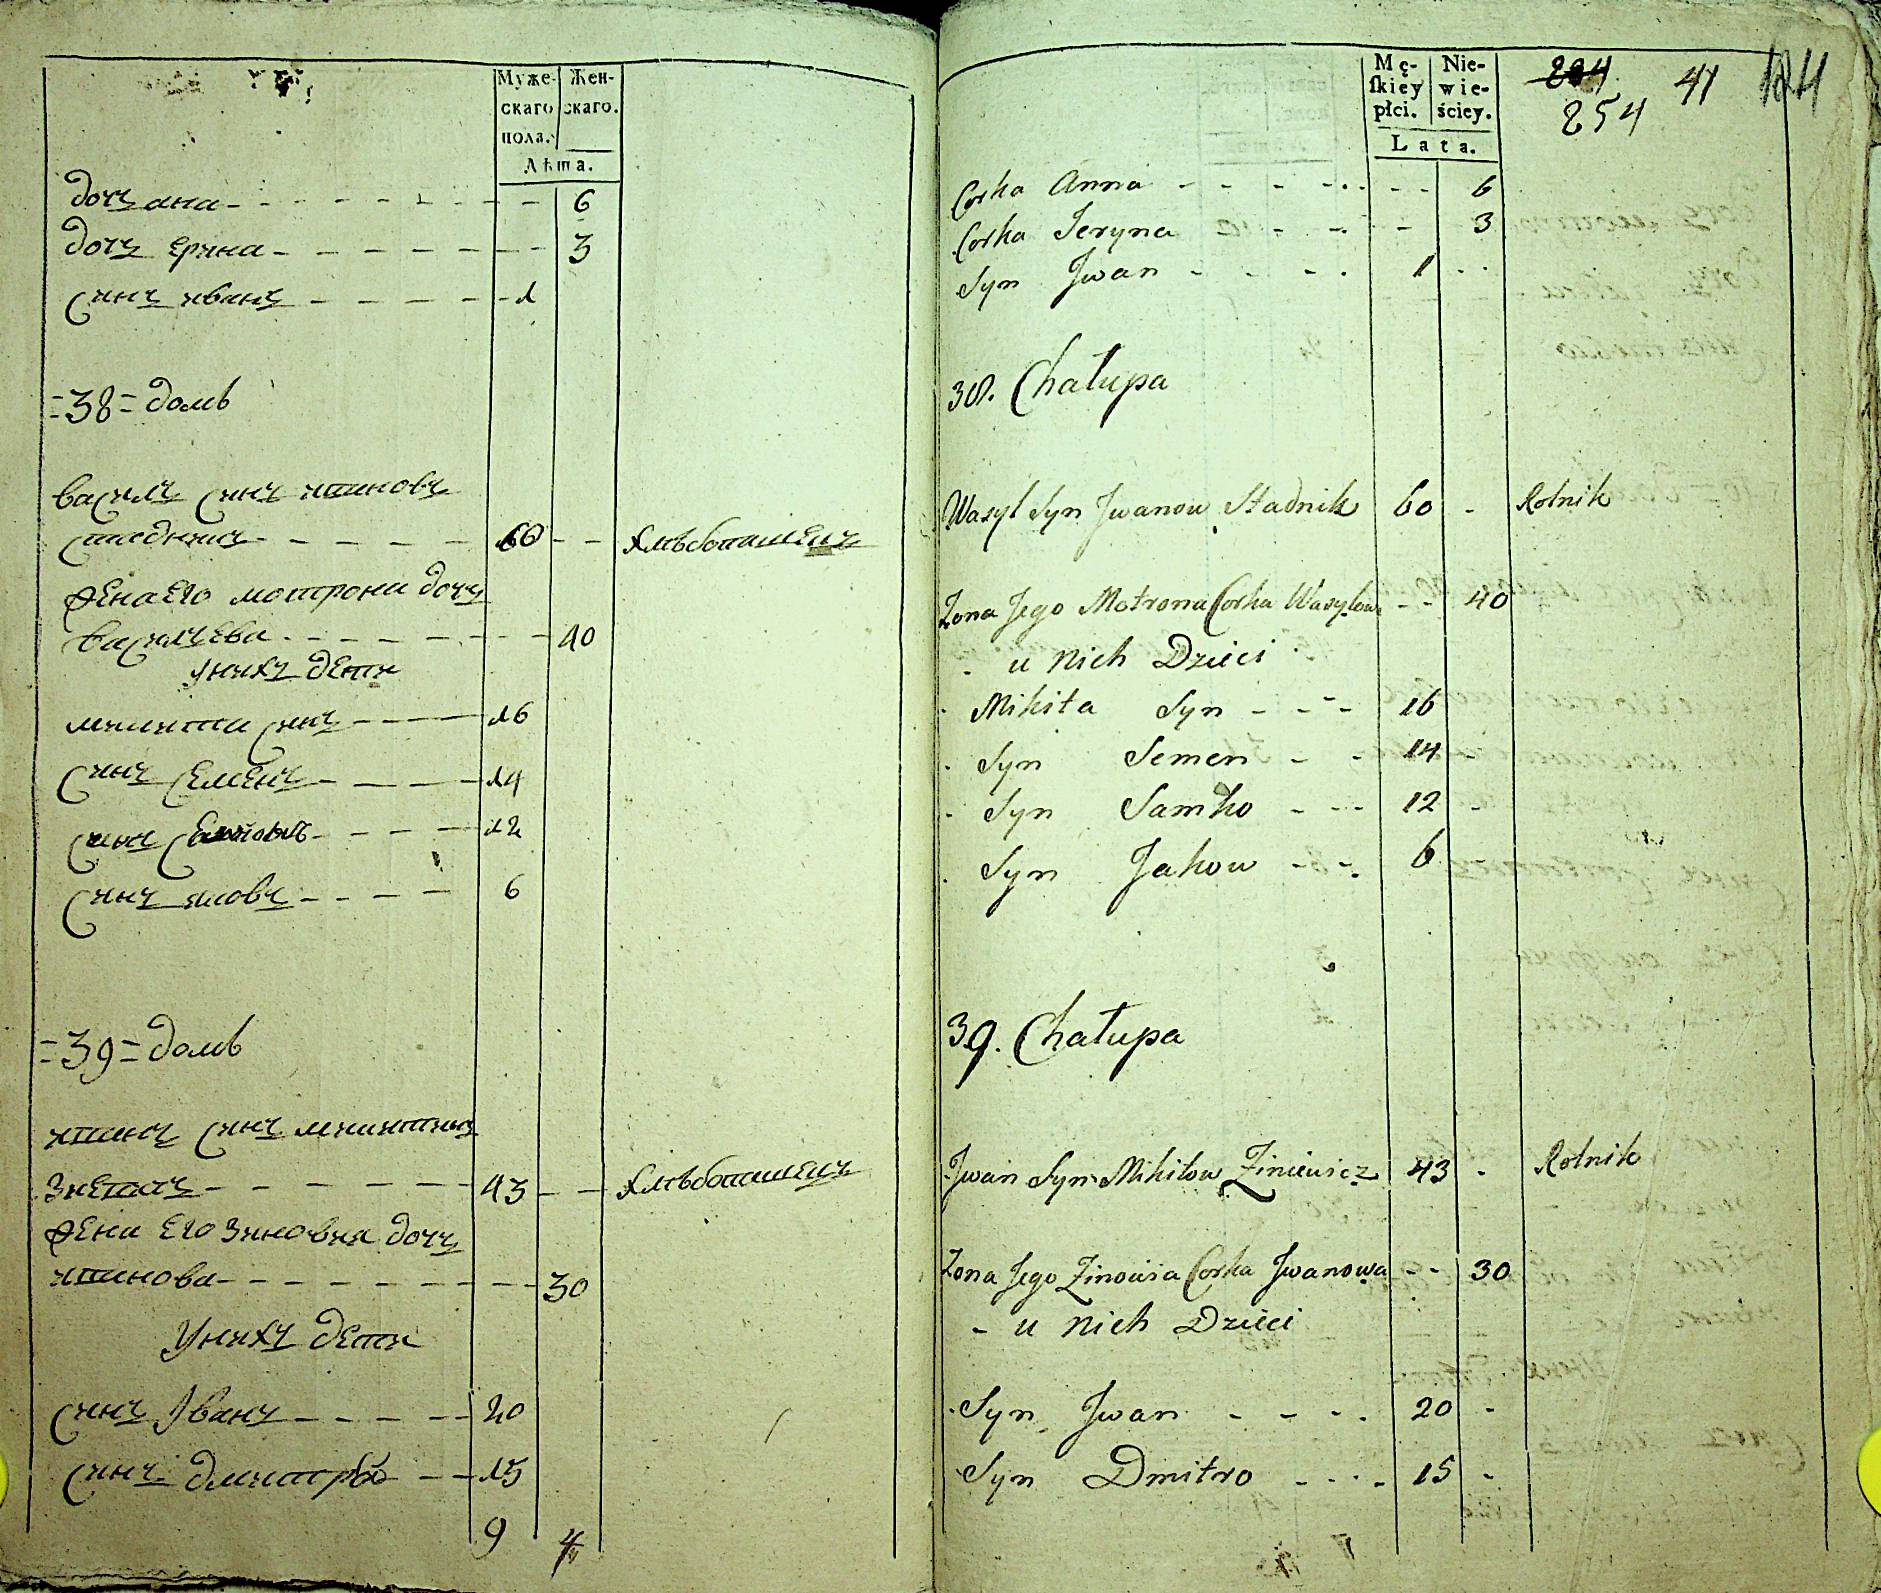 Муже-
скаго
пола.
Жен-
скаго.
Лѣта.
дочъ ана - - - - - - - - 6
дочъ ерина - - - - - - - 3
синъ иванъ - - - - - 1
=38= домъ
василъ синъ
- - - - - 60 - - хлѣбопашецъ
жена его мотрона дочъ
василева - - - - - - - 40
унихъ дети
микита синъ - - - - 16
синъ семенъ - - - - 14
синъ - - - - 12
синъ яковъ - - - - 6
=39= домъ
синъ микитинъ
- - - - - - 43 - - хлѣбопашецъ
жена его зиновия дочъ
- - - - - - - - 30
унихъ дети
синъ Іванъ - - - - - 20
синъ дмитро - - 15
9 4
Mę-
skiey
płci.
Nie-
wie-
ściey.
Lata.
254 41 124
Corka Anna - - - - - - - 6
Corka Jeryna - - - 3
Syn Jwan - - - - 1 - -
38. Chałupa
Wasyl Syn Jwanow Stadnik 60 - Rolnik
Zona Jego Motrona Corka Wasylowa - - 40
- u nich Dzieci
Mikita Syn - - - 16
Syn Semen - - 14 -
Syn Samko - - - 12 -
Syn Jakow - - 6 -
39. Chałupa
Jwan Syn Mikitow Ziniewicz 43 - Rolnik
Zona Jego Zinowia Corka Jwanowa - - 30
- u nich Dzieci
Syn Jwan - - - - 20 -
Syn Dmitro - - - - 15 -